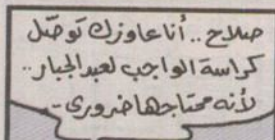 صلاح .. أنا عاوزك توصّل
كراسة الواجب لعبد الجبار ..
لأنه محتاجها ضروري ..